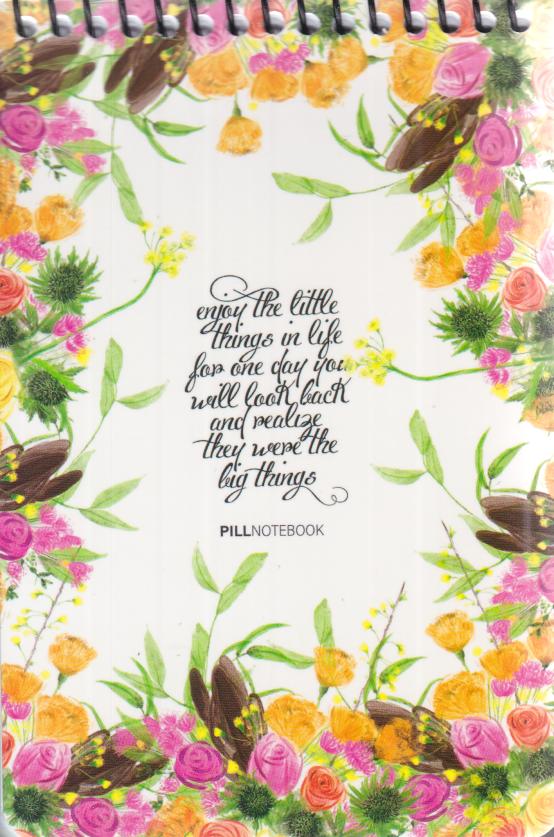 enjoy the little
things in life
for one day you
will look back
and realize
they were the
big things
PILLNOTEBOOK